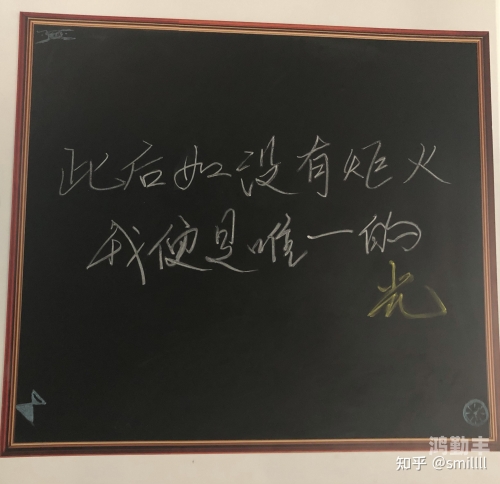 此后如没有炬火
我便是唯一的
光
鸿勤丰
知乎 @smillll